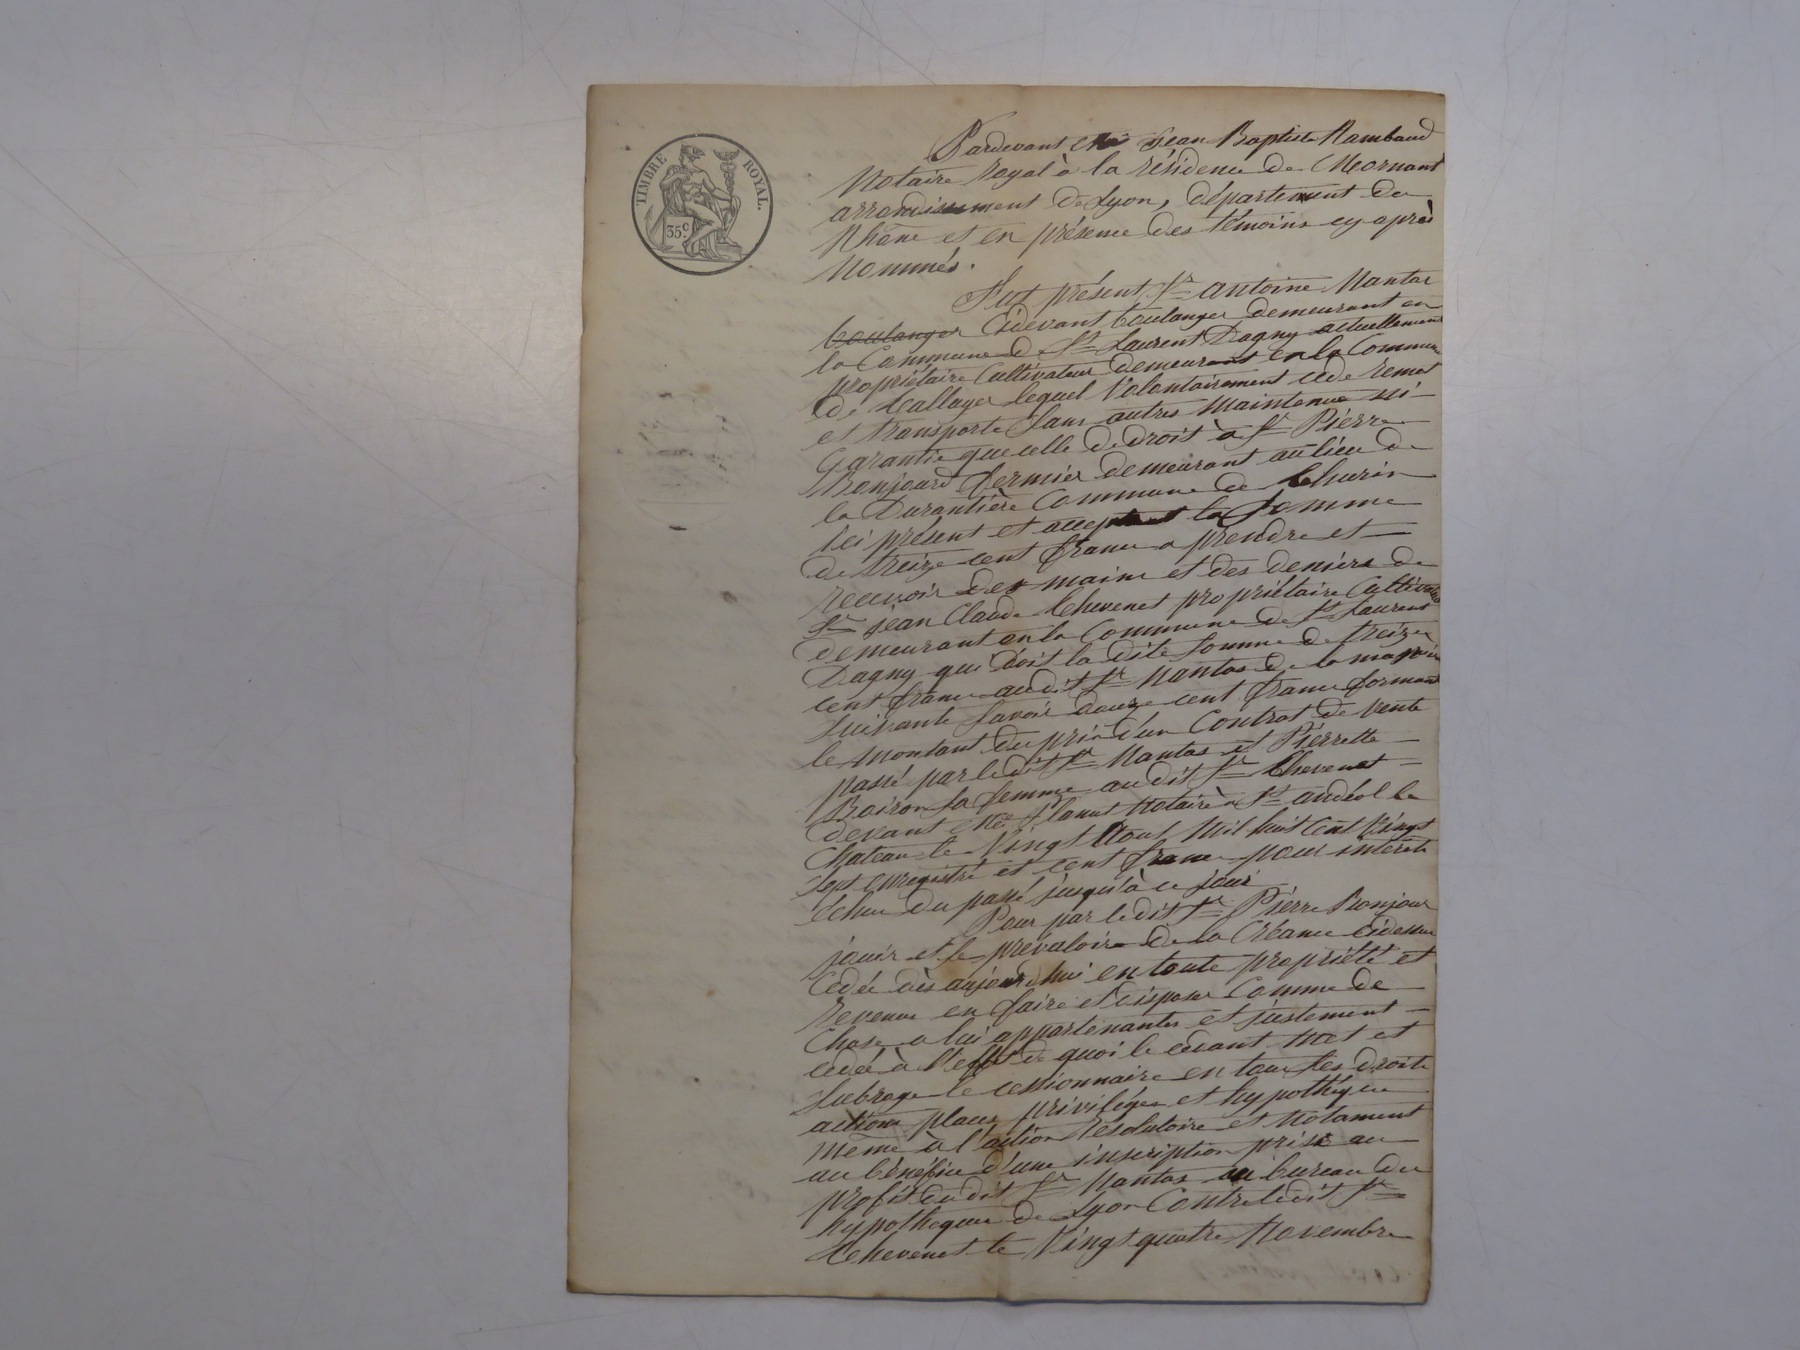 TIMBRE ROYAL.
35 c.
Pardevant Me Jean Baptiste Rambaud
Notaire Royal à la résidence de Mornant
arrondissement de Lyon, département du
Rhône et en présence des témoins cy après
Nommés.
Fut présent Sr antoine Nantas
boulanger Cidevant boulanger demeurant en
la Commune de St Laurent Dagny actuellement
propriétaire Cultivateur demeurant en la Commune
de lequel Volontairement cede remet
et transporte sans autres maintenue ni
Garantie que celle de droit à Sr Pierre
Bonjour fermier demeurant au lieu de
la Durantière Commune de Thurin
ici présent et acceptant la Somme
de treize cent francs a prendre et
recevoir des mains et des deniers de
Sr jean Claude Chevenet propriétaire Cultivateur
demeurant en la Commune de St Laurent
Dagny qui doit la dite Somme de treize
cent francs audit Sr Nantas de la manière
suivante Savoir douze cent francs formant
le montant du prix d'un Contrat de Vente
passé par ledit Sr Nantas et Pierrette
Boiron sa femme audit Sr Chevenet
devant Me notaire à St andéol le
Chateau le Vingt Aout Mil huit Cent Vingt
Sept enregistré et cent francs pour intérêts
échus du passé jusqu'à ce jour
Pour par ledit Sr Pierre Bonjour
jouir et se prévaloir de la Créance cidessus
Cédée dès aujourd'hui en toute propriété et
revenus en faire et disposer Comme de
Chose a lui appartenantes et justement
cédée à l'effet de quoi le cédant Met et
Subroge le cessionnaire en tous ses droits
actions places privilèges et hypothèques
même à l'action Résolutoire et Notament
au bénéfice d'une inscription prise au
profit dudit Sr Nantas au bureau des
hypothèques de Lyon Contre ledit Sr
Chevenet le Vingt quatre Novembre